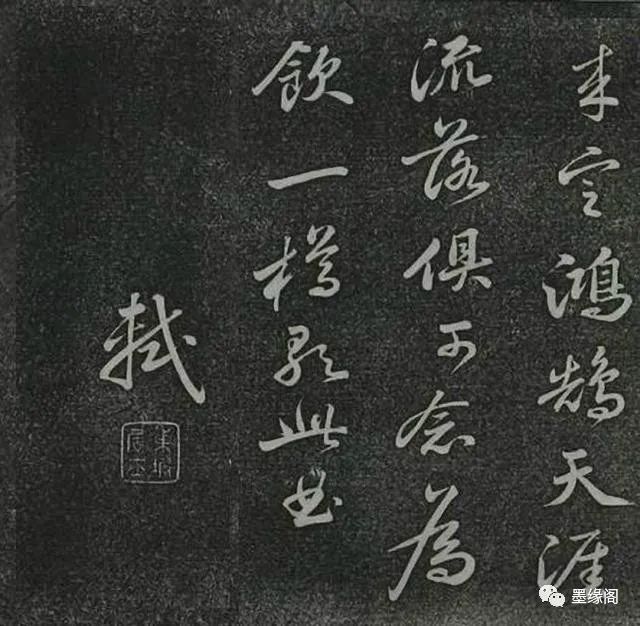 来定鴻鵠天涯
流落俱可念為
飲一樽歌此曲
軾
東坡居士
墨缘阁